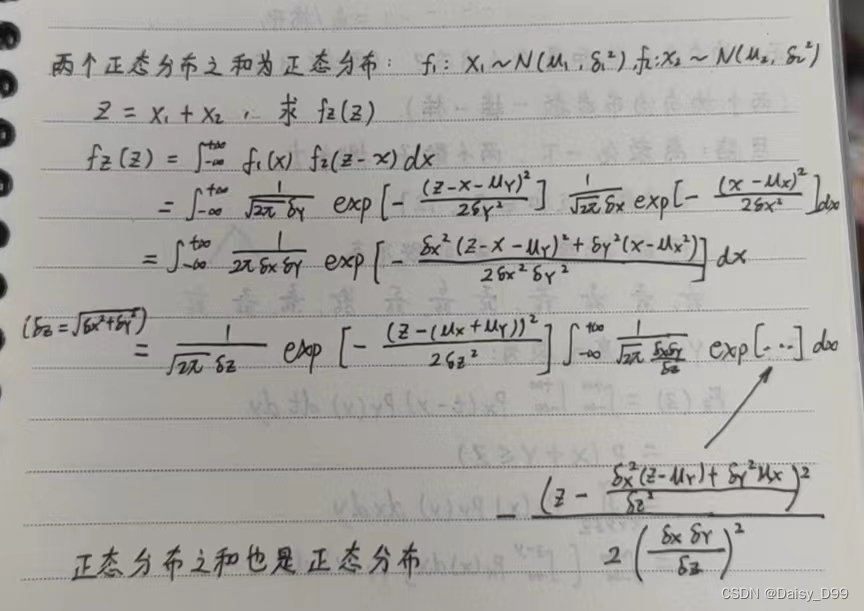 两个正态分布之和为正态分布： f₁: X₁~N(μ₁, δ₁²), f₂: X₂~N(μ₂, δ₂²)
Z = X₁ + X₂ , 求 fz(z)
fz(z) = ∫₋∞⁺∞ f₁(x) f₂(z-x) dx
= ∫₋∞⁺∞ 1/(√2π δY) exp[- (z-x-μY)²/(2δY²)] 1/(√2π δx) exp[- (x-μx)²/(2δx²)] dx
= ∫₋∞⁺∞ 1/(2π δx δY) exp[- (δx²(z-x-μY)² + δY²(x-μx²))/(2δx²δY²)] dx
(δz = √(δx²+δY²))
= 1/(√2π δz) exp[- (z-(μx+μY))²/(2δz²)] ∫₋∞⁺∞ 1/(√2π (δxδY/δz)) exp[...] dx
- (z - (δx²(z-μY)+δY²μx)/δz²)² / (2(δxδY/δz)²)
正态分布之和也是正态分布
CSDN @Daisy_D99